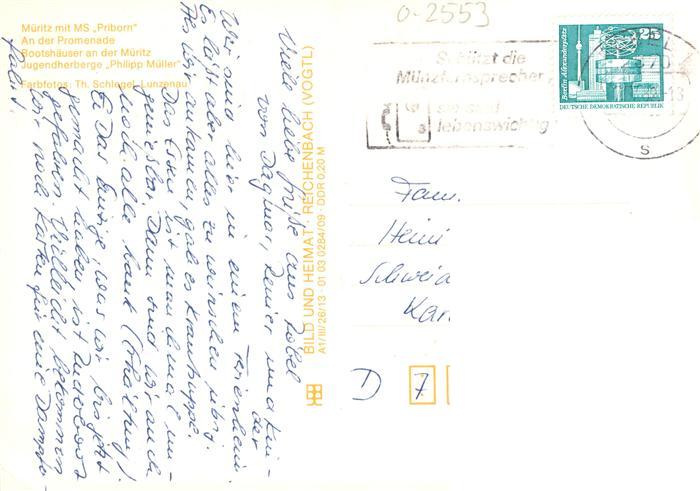 Müritz mit MS „Priborn"
An der Promenade
Bootshäuser an der Müritz
Jugendherberge „Philipp Müller"
Farbfotos: Th. Schlegel, Lunzenau
0-2553
Schützt die
Münzfernsprecher,
sie sind
lebenswichtig
25
Berlin, Alexanderplatz
DEUTSCHE DEMOKRATISCHE REPUBLIK
13
s
Viele liebe Grüße aus Röbel
von Dagmar, Reiner und Kin-
der
Wir sind hier in einem Ferienheim.
Es läßt aber alles zu wünschen übrig.
Als wir ankamen, gab es Krautsuppe.
Das Essen ist manchmal un-
genießbar. Dann sind wir auch
noch alle krank (Erkältung)
Das Einzige, was wir bis jetzt
gemacht haben ist Ruderboot
gefahren. Vielleicht bekommen
wir noch Karten für eine Dampfer-
fahrt.
BILD UND HEIMAT REICHENBACH (VOGTL)
A1/III/26/13 01 03 0284/09 DDR 0,20 M
Fam.
D 7